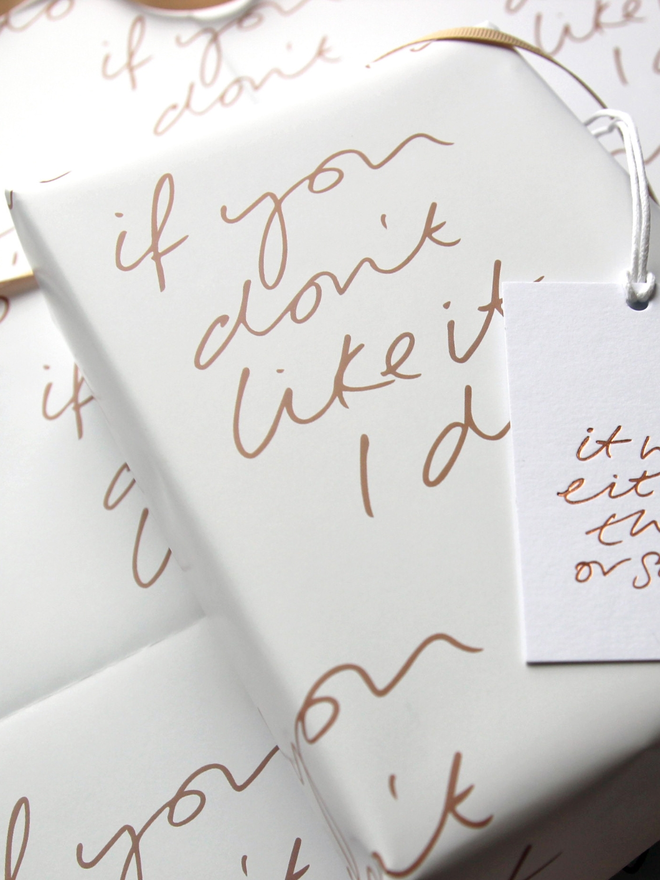 if you
don't
if you
don't
like it
I d
like
I
if
it w
eit
th
or so
you
don't
if you